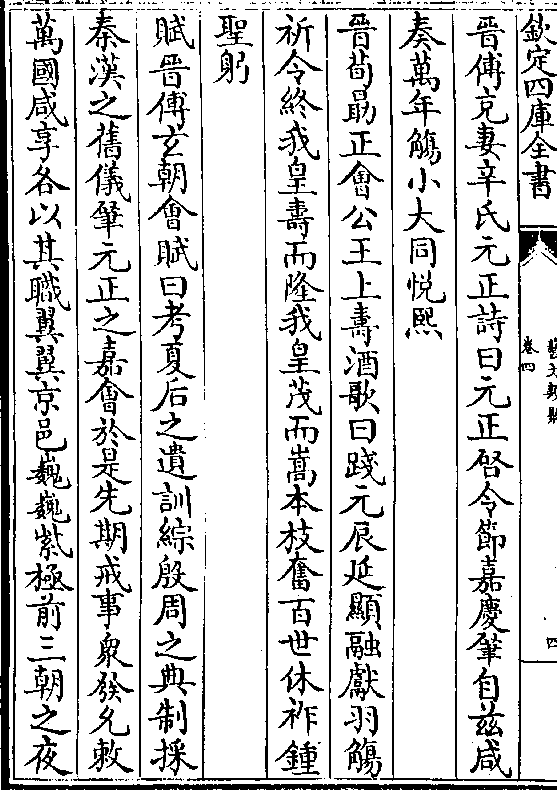 欽定四庫全書
藝文類聚
卷四
四
晉傅充妻辛氏元正詩曰元正啓令節嘉慶肇自茲咸
奏萬年觴小大同悅熙
晉荀勗正會公王上壽酒歌曰踐元辰延顯融獻羽觴
祈令終我皇壽而隆我皇茂而嵩本枝奮百世休祚鍾
聖躬
賦晉傅玄朝會賦曰考夏后之遺訓綜殷周之典制採
秦漢之舊儀肇元正之嘉會於是先期戒事衆發允敕
萬國咸享各以其職翼翼京邑巍巍紫極前三朝之夜